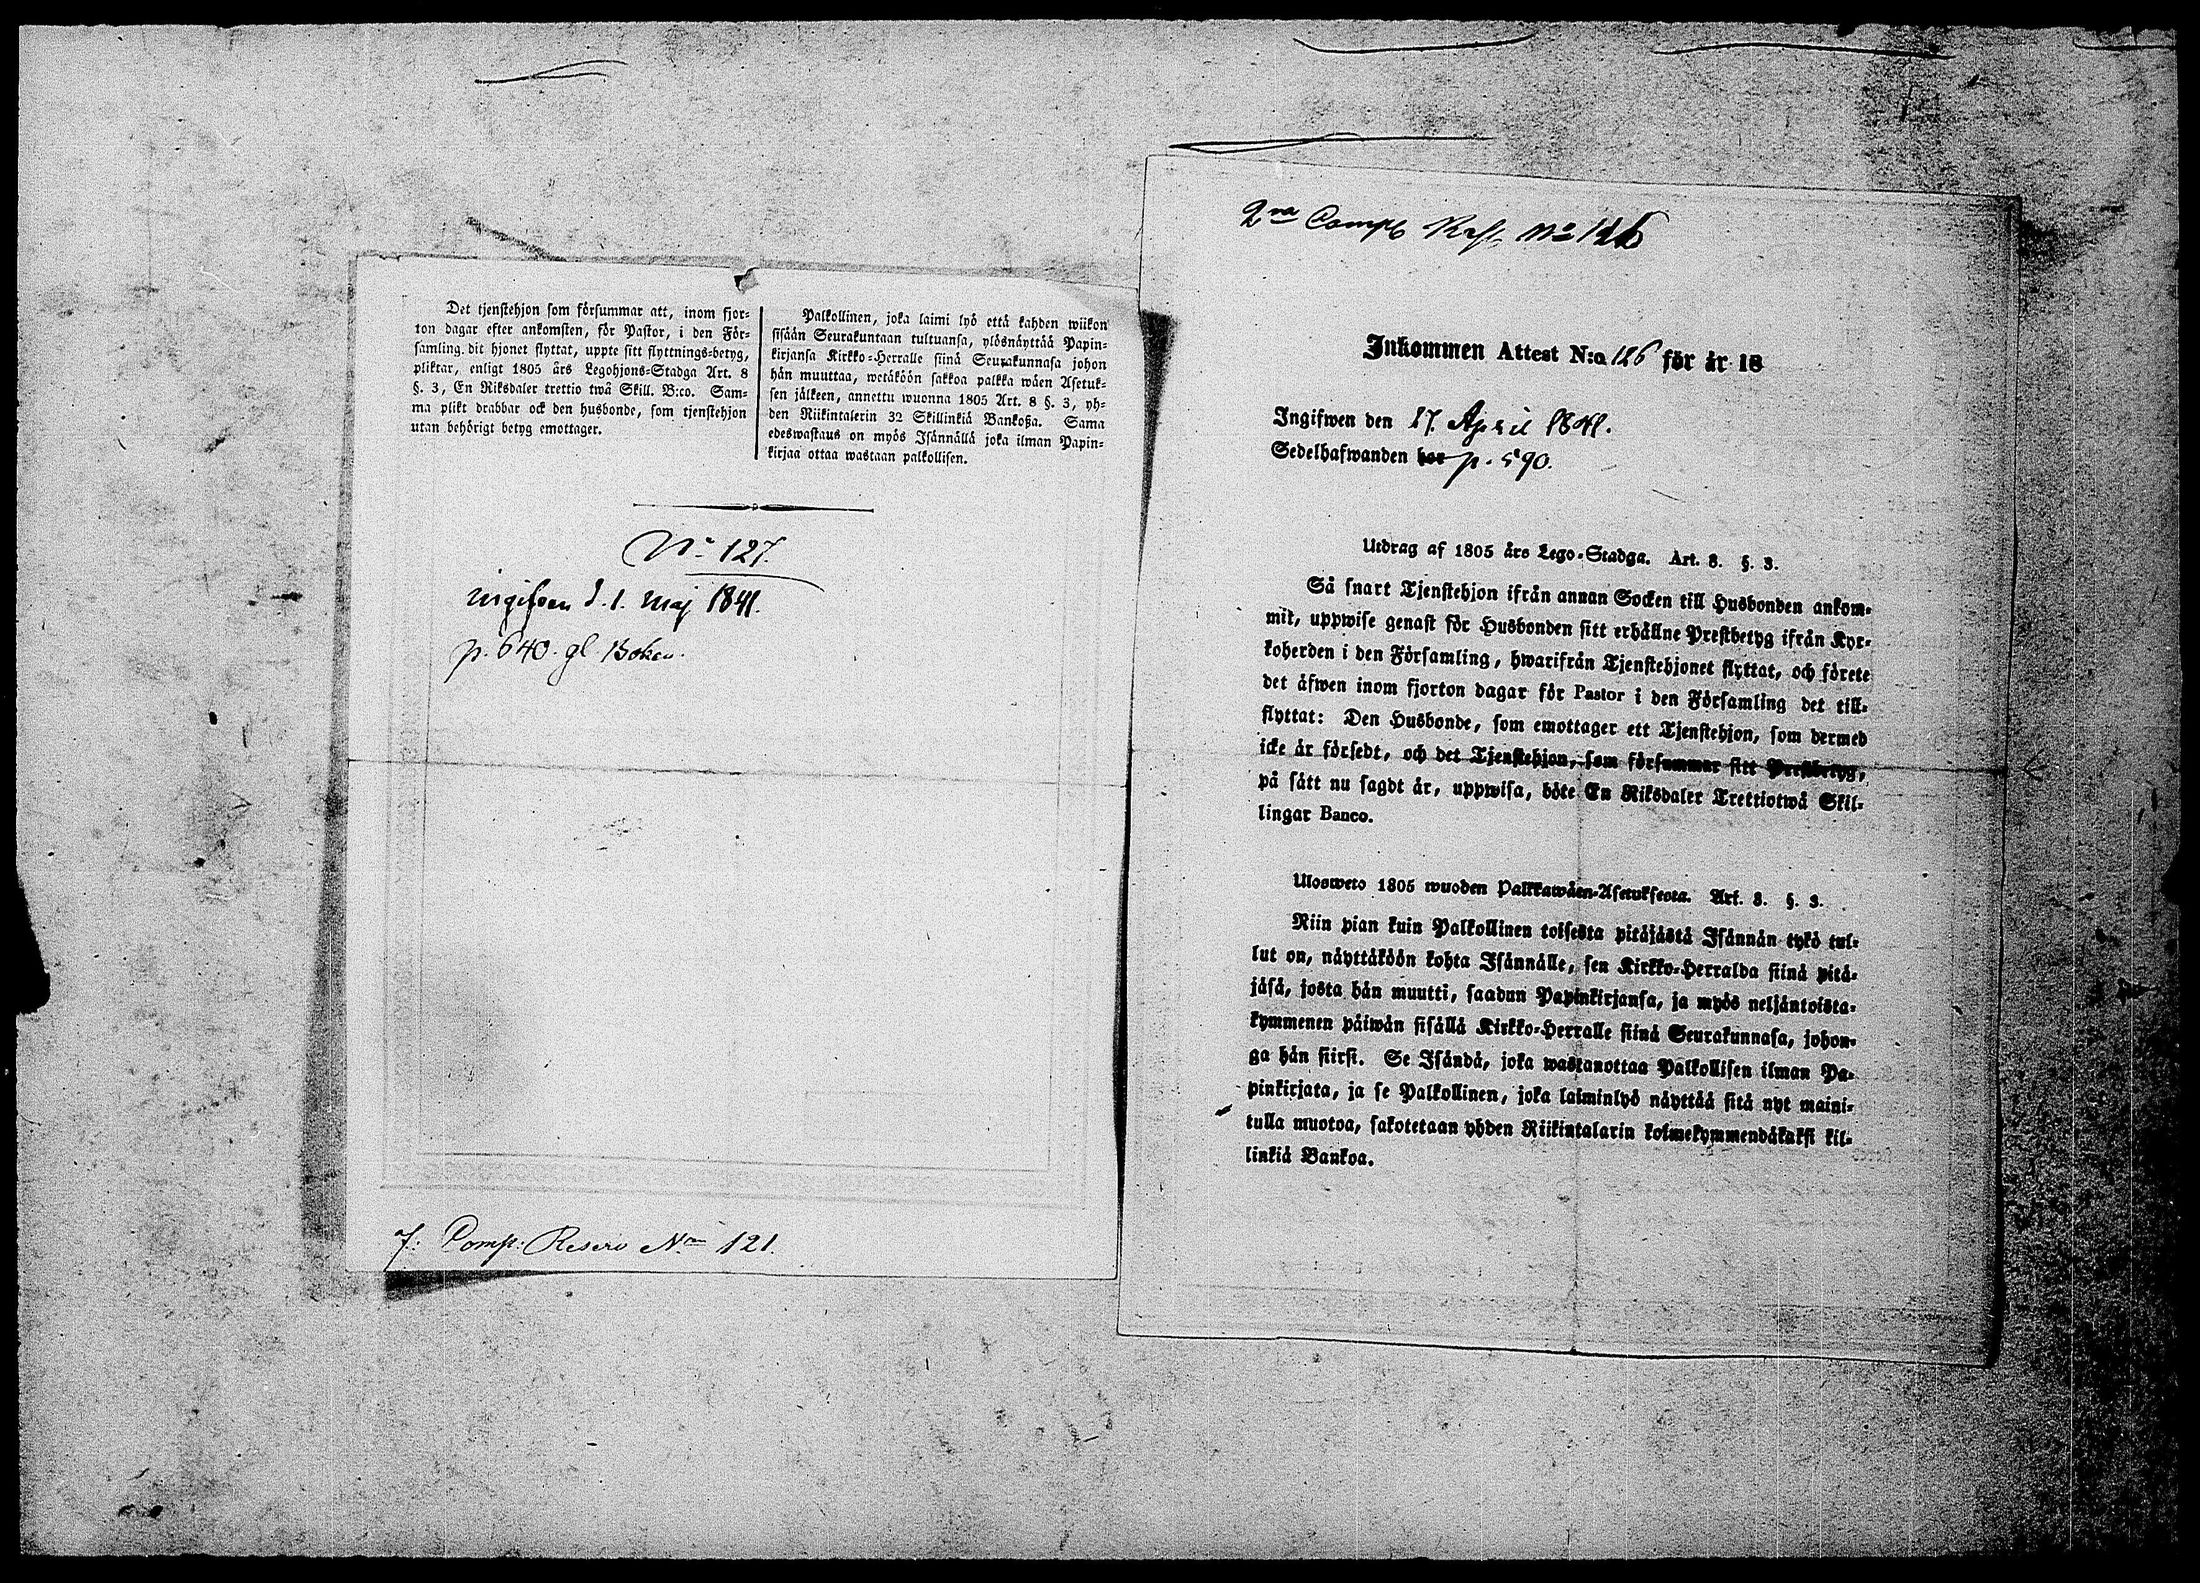 Det tjenstehjon som försummar att, inom fjor-
ton dagar efter ankomsten, för Pastor, i den För-
samling dit hjonet flyttat, uppte sitt flyttnings-betyg,
pliktar, enligt 1805 års Legohjons-Stadga Art. 8
§. 3, En Riksdaler trettio twå Skill. B:co. Sam-
ma plikt drabbar ock den husbonde, som tjenstehjon
utan behörigt betyg emottager.
Palkollinen, joka laimi lyö että kahden wiikon
sisään Seurakuntaan tultuansa, ylösnäyttää Papin-
kirjansa Kirkko-Herralle siinä Seurakunnasa johon
hän muuttaa, wetäköön sakkoa palkka wäen Asetuk-
sen jälkeen, annettu wuonna 1805 Art. 8 §. 3, yh-
den Riikintalerin 32 Skillinkiä Bankoßa. Sama
edeswastaus on myös Isännällä joka ilman Papin-
kirjaa ottaa wastaan palkollisen.
No 127.
ingifven d. 1. Maj 1841.
p. 640. gl Boken.
Comp: Reserv No 121.
2ra Comp No 126
Inkommen Attest N:o 126 för år 18
Ingifwen den 17. April 1841.
Sedelhafwanden bor p. 590.
Utdrag af 1805 års Lego-Stadga. Art. 8. §. 3.
Så snart Tjenstehjon ifrån annan Socken till Husbonden ankom-
mit, uppwise genast för Husbonden sitt erhållne Prestbetyg ifrån Kyr-
koherden i den Församling, hwarifrån Tjenstehjonet flyttat, och förete
det äfwen inom fjorton dagar för Pastor i den Församling det till-
flyttat: Den Husbonde, som emottager ett Tjenstehjon, som dermed
icke är försedt, och det Tjenstehjon, som försummar sitt Prestbetyg,
på sätt nu sagdt är, uppwisa, böte En Riksdaler Trettiotwå Skil-
lingar Banco.
Ulosweto 1805 wuoden Palkkawäen-Asetuksesta. Art. 8. §. 3.
Niin pian kuin Palkollinen toisesta pitäjästä Isännän tykö tul-
lut on, näyttäköön kohta Isännälle, sen Kirkko-Herralda siinä pitä-
jäsä, josta hän muutti, saadun Papinkirjansa, ja myös neljäntoista-
kymmenen päiwän sisällä Kirkko-Herralle siinä Seurakunnasa, johon-
ga hän siirsi. Se Isändä, joka wastanottaa Palkollisen ilman Pa-
pinkirjata, ja se Palkollinen, joka laiminlyö näyttää sitä nyt maini-
tulla muotoa, sakotetaan yhden Riikintalarin kolmekymmendäkaksi kil-
linkiä Bankoa.